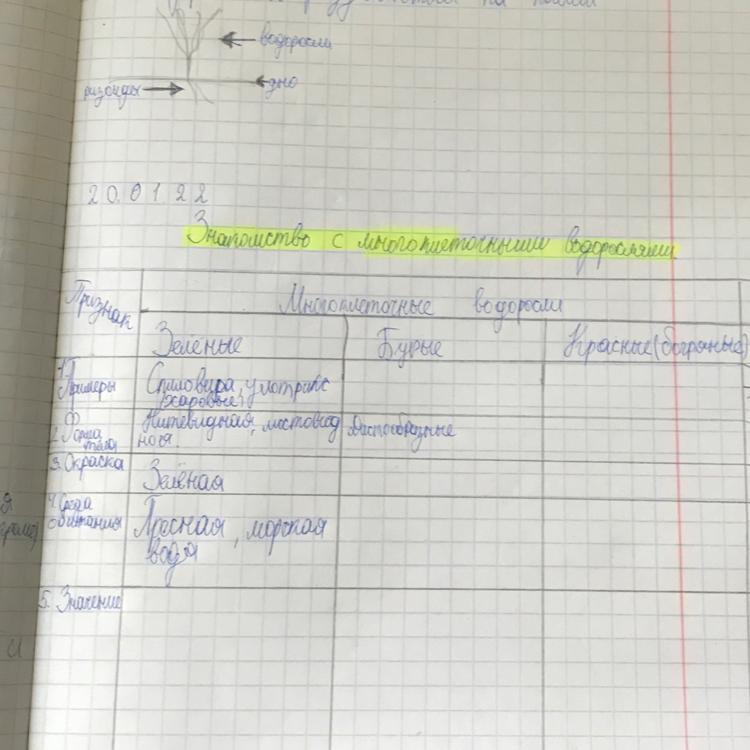 водоросли
дно
ризоиды
20.01.22
Знакомство с многоклеточными водорослями
Признак
Многоклеточные водоросли
Зелёные
Бурые
Красные (багряные)
1.
Примеры
Спирогира, улотрикс
харовые
2. Форма
тела
Нитевидная, листовид
ная.
Листообразные
3. Окраска
Зелёная
4. Среда
обитания
Пресная, морская
вода
5. Значение